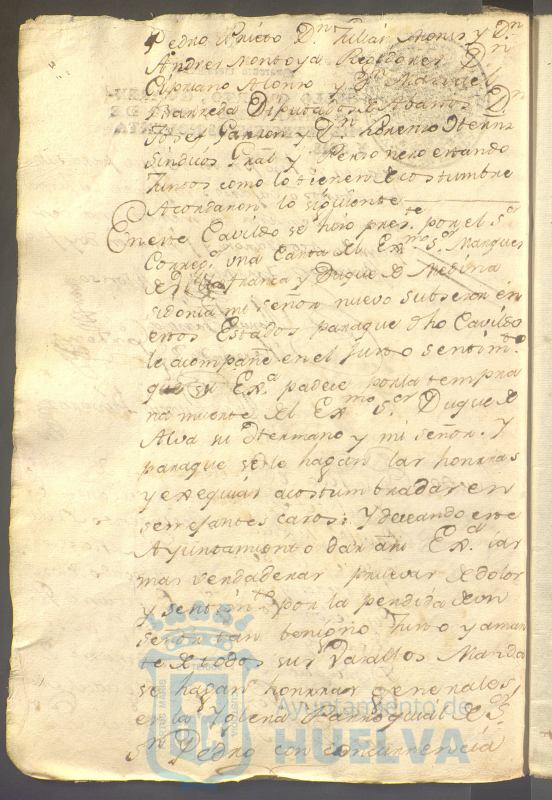 Pedro Prieto Dn Julián Monis y Dn
Andres Montoya Regidores Dn
Cipriano Alonso y Dn Manuel
Barreda Diputados de Abastos Dn
Josef Garzon y Dn Lorenzo
Sindicos Gral y Personero estando
Juntos como lo tienen de costumbre
Acordaron lo siguiente
En este Cavildo se hizo preste por el Sr
Corregr una Carta del Exmo Sr Marques
de Villafranca y Duque de Medina
sidonia mi señor nuevo subsesor en
estos Estados paraque dho Cavildo
le acompañe en el Justo sentimto
que su Exa padece por la tempra
na muerte del Exmo Sor Duque de
Alva su Hermano y mi señor. Y
paraque se le hagan las honrras
y exequias acostumbradas en
semejantes casos: Y deceando este
Ayuntamiento dar asu Exa las
mas verdaderas pruevas de dolor
y sentimto por la perdida de un
señor tan benigno Justo y aman
te de todos sus Vasallos Manda
se hagan honrras generales
en la Yglesia Parroquial de Sr
Sn Pedro con concurrencia
Ayuntamiento de
HUELVA